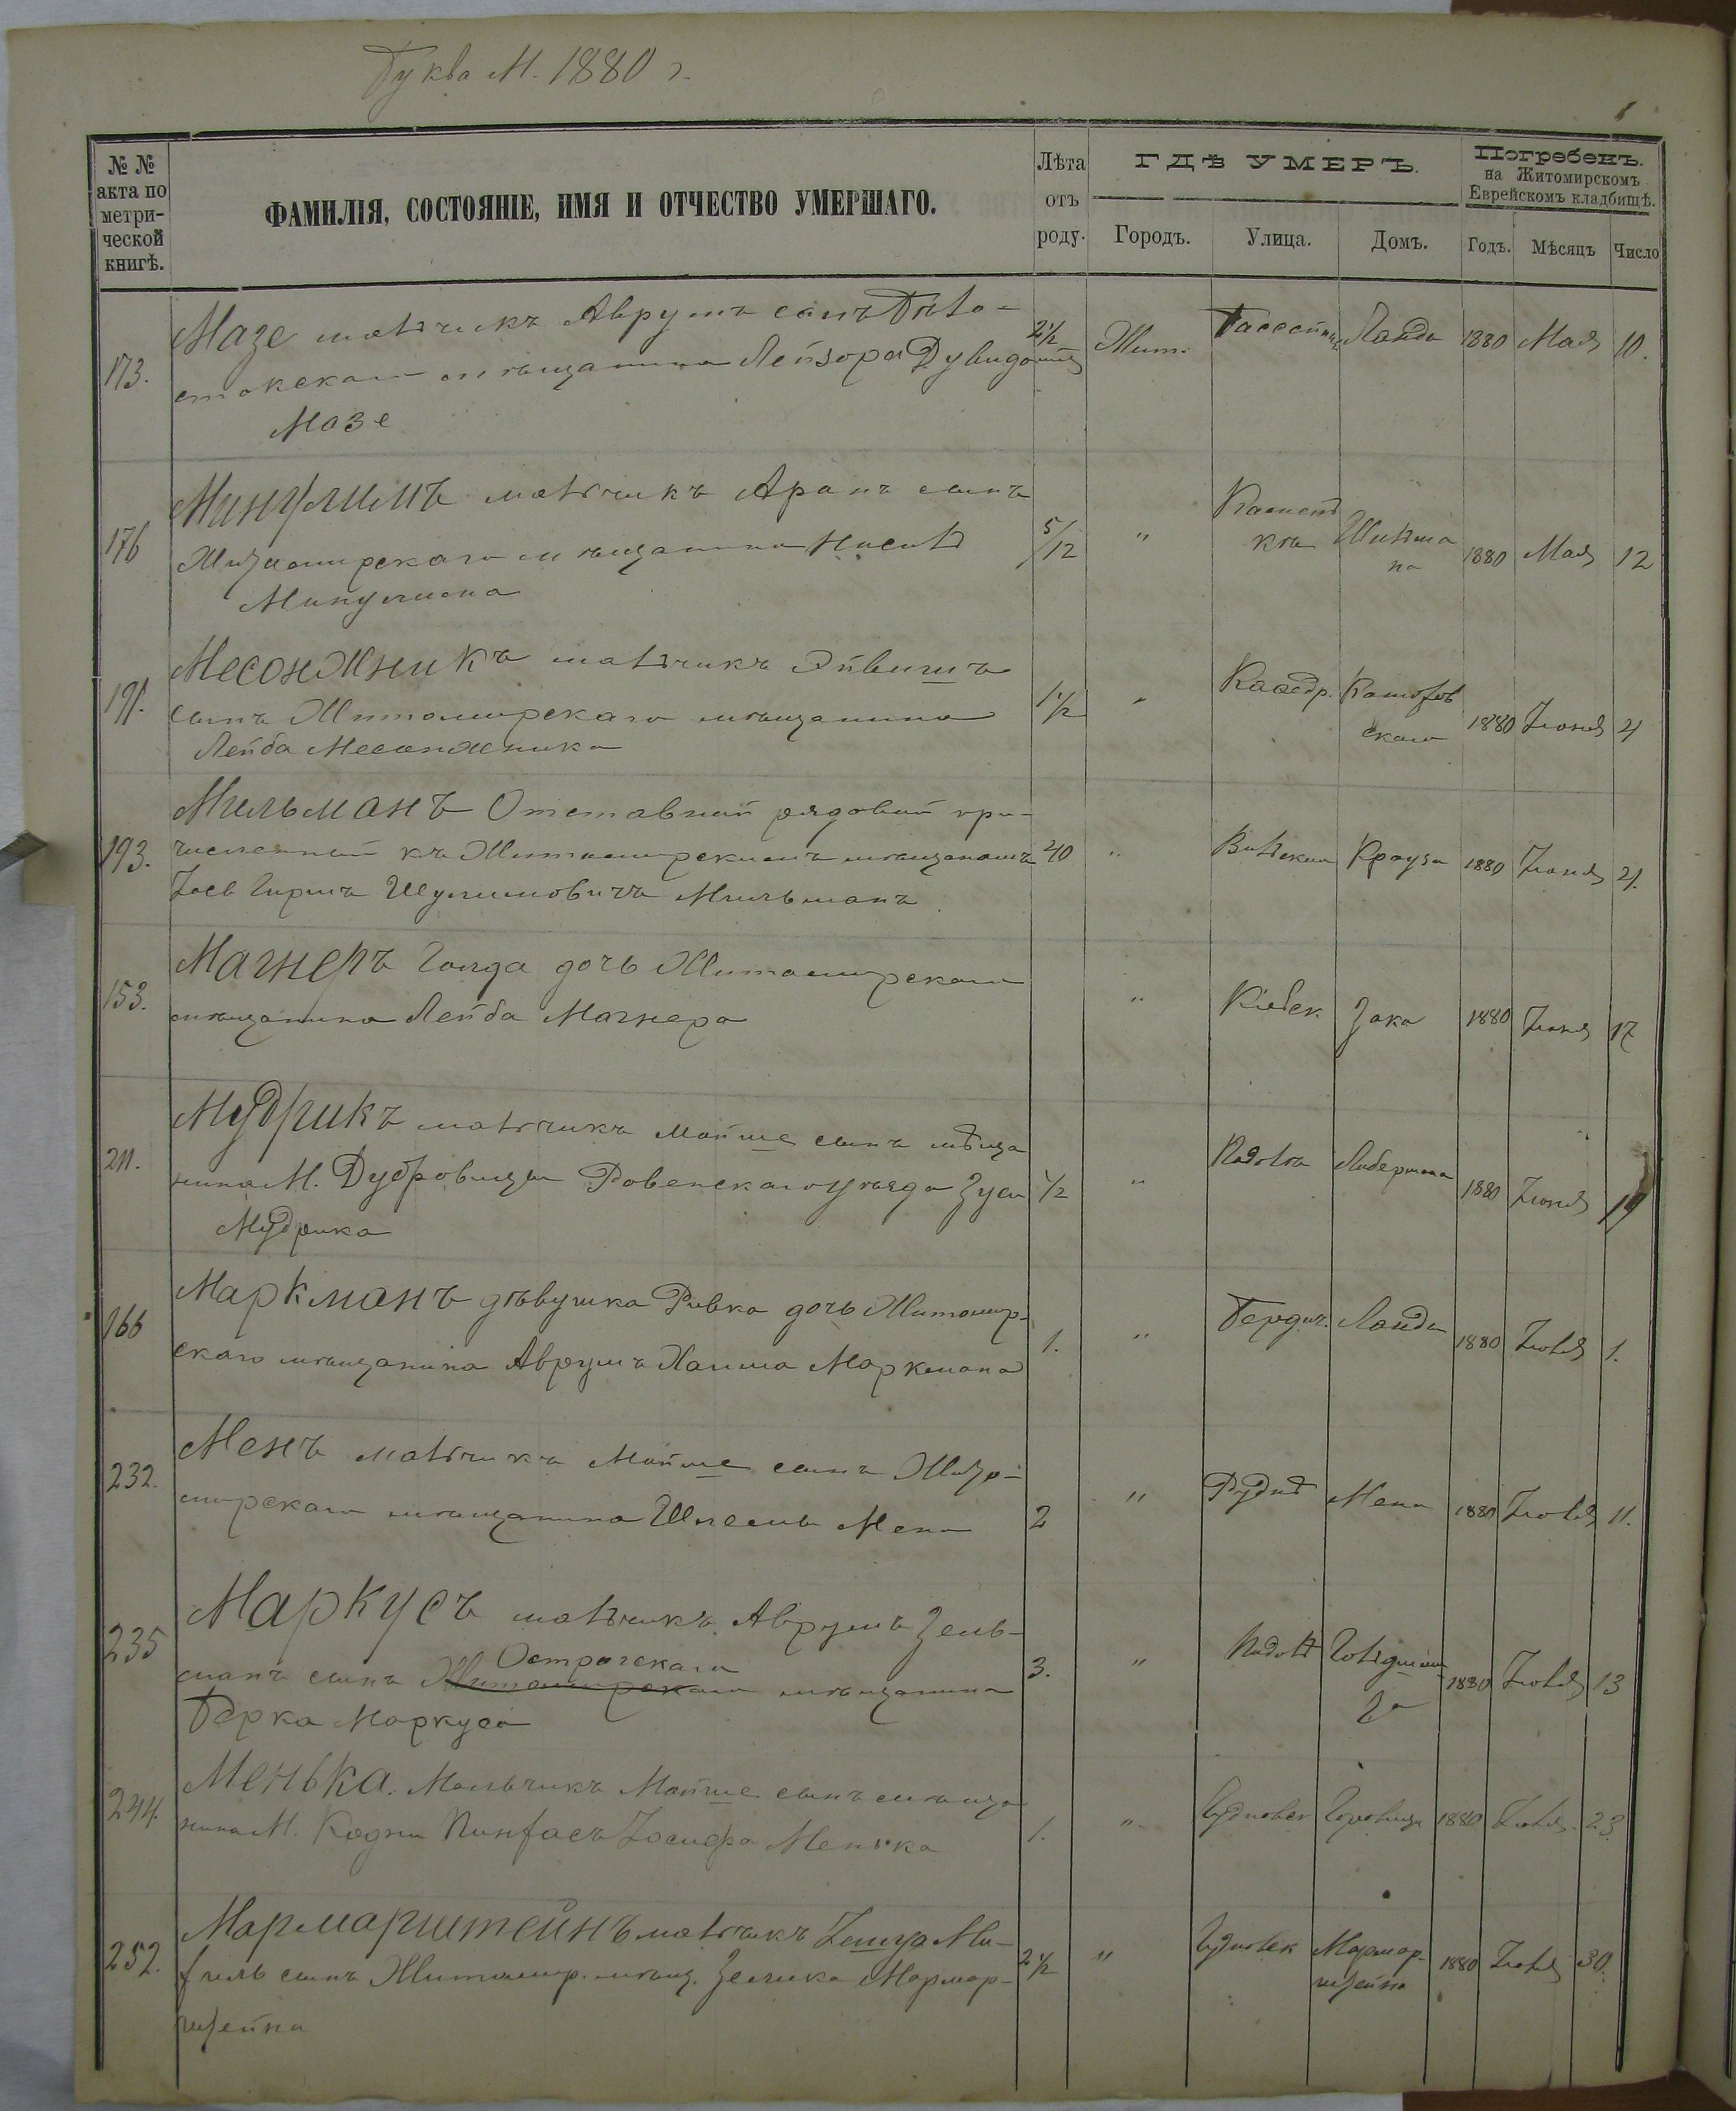 Буква М. 1880 г.
№ № акта по метрической книгѣ.
ФАМИЛІЯ, СОСТОЯНІЕ, ИМЯ И ОТЧЕСТВО УМЕРШАГО.
Лѣта отъ роду.
ГДѢ УМЕРЪ.
Городъ. Улица. Домъ.
Погребенъ.
на Житомирскомъ
Еврейскомъ кладбищѣ.
Годъ. Мѣсяцъ Число
173. Мазе мальчикъ Аврумъ сынъ Бѣло-
стокскаго мѣщанина Лейзора Дувида 2½ Жит. Ланда 1880 Мая 10.
Мазе
176 Микулимъ мальчикъ Аранъ сынъ
Житомирскаго мѣщанина 5/12 " 1880 Мая 12
Микулима
191. Месонжникъ мальчикъ
сынъ Житомирскаго мѣщанина 1½ " Каѳедр. 1880 Іюня 4
Лейба Месонжника
193. Мильманъ Отставной рядовой при-
численный къ Житомирскимъ мѣщанамъ 40 " Вильская Крауза 1880 Іюня 4.
Іосъ Гиршъ Шулимовичъ Мильманъ
153. Магнеръ Голда дочь Житомирскаго
мѣщанина Лейба Магнера " Кіевск Зака 1880 Іюня 17
211. Мудрикъ мальчикъ Мойше сынъ мѣща
нина М. Дубровицы Ровенскаго уѣзда Зуси ½ " Подольн Либермана 1880 Іюня 19
Мудрика
166 Маркманъ дѣвушка Ривка дочь Житомир-
скаго мѣщанина Аврумъ Хаима Маркмана 1. " Бердич. Ланда 1880 Іюля 1.
232. Менъ мальчикъ Мойше сынъ Жито-
мирскаго мѣщанина Шлемы Мена 2 " Рудня Мена 1880 Іюля 11.
235 Маркусъ мальчикъ Аврумъ Зель-
Острогскаго
манъ сынъ Житомирскаго мѣщанина 3. " Подол 1880 Іюля 13
Берка Маркуса
244. Менька. Мальчикъ Мойше сынъ мѣща
нина М. Кодни Пинхасъ Іосифа Менька 1. " Чудновск Горовица 1880 Іюля 23
252. Мармарштейнъ мальчикъ Ми-
хиль сынъ Житомир. мѣщ. Зелика Мармар- 2½ " Чудновск Мармар- 1880 Іюля 30.
штейна штейна